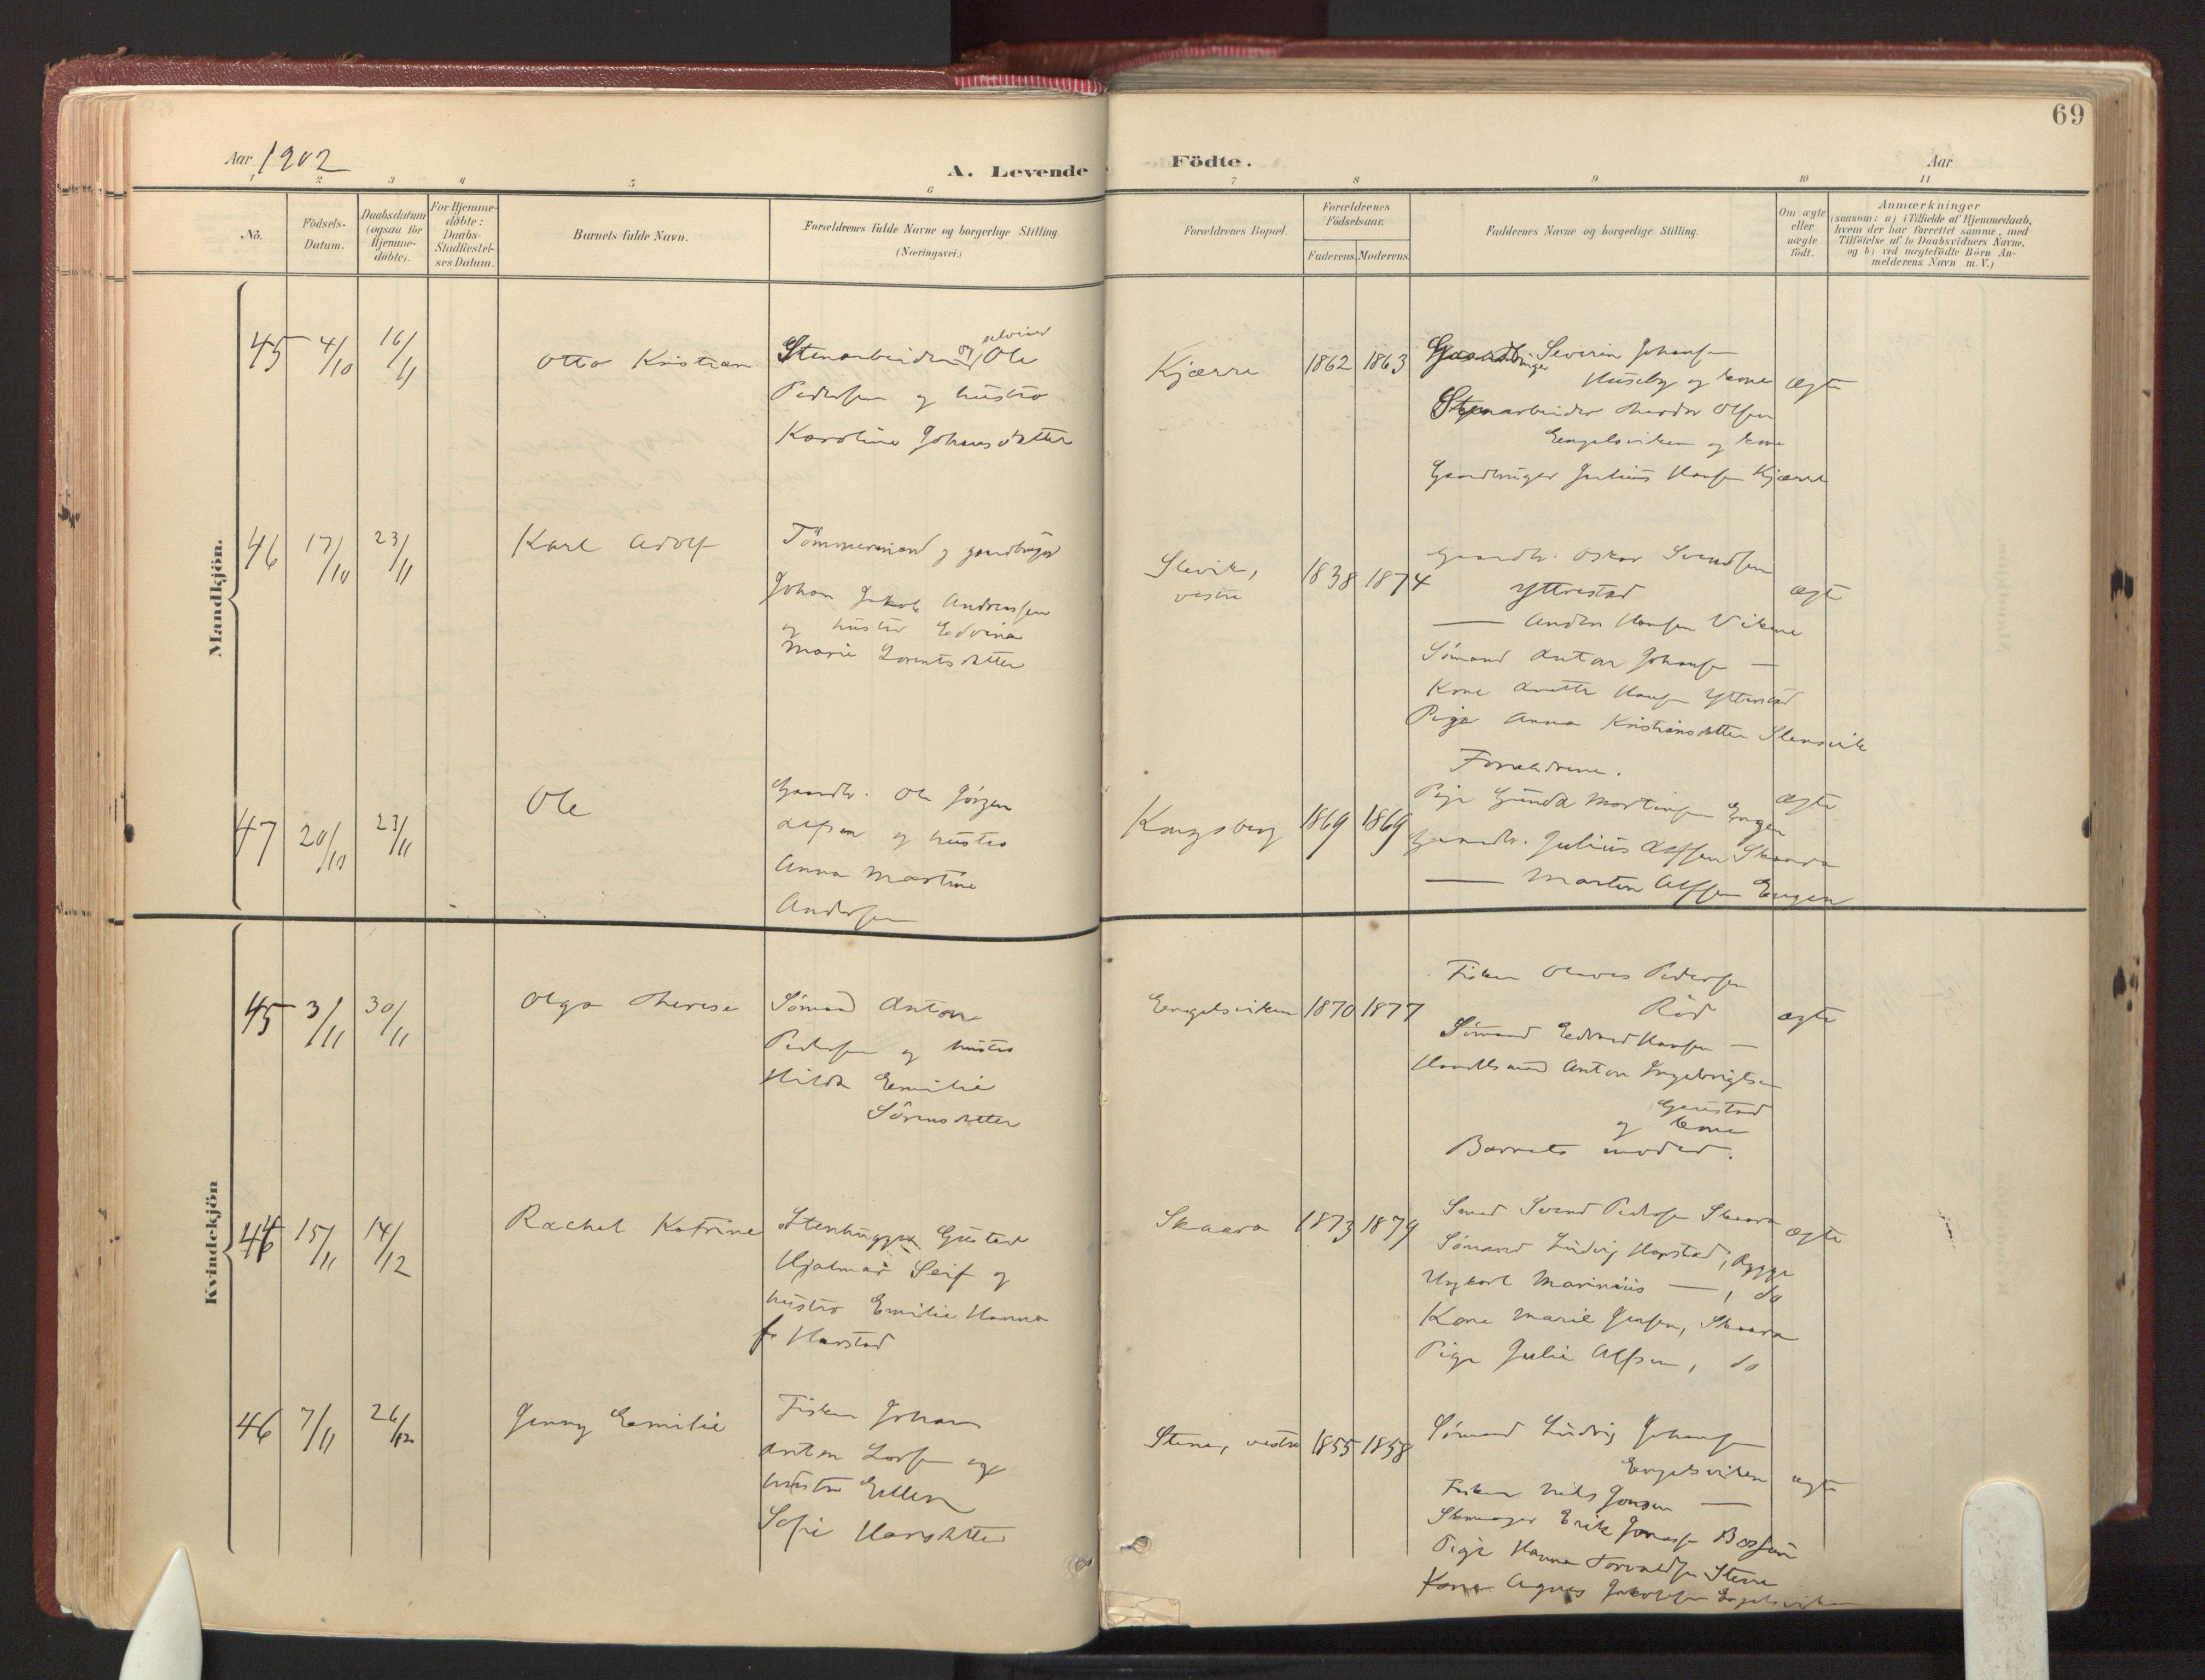 69
Aar 1902
A. Levende Födte.
Aar
1 2 3 4 5 6 7 8 9 10 11
No.
Födsels-Datum.
Daabsdatum (ogsaa for Hjemme-döbte).
For Hjemme-döbte: Daabs-Stadfæstel-ses Datum.
Barnets fulde Navn.
Forældrenes fulde Navne og borgerlige Stilling. (Næringsvei.)
Forældrenes Bopæl.
Forældrenes Födselsaar.
Faderens. Moderens.
Faddernes Navne og borgerlige Stilling.
Om ægte eller uægte födt.
Anmærkninger
(saasom: a) i Tilfælde af Hjemmedaab, hvem der har forrettet samme, med Tilföielse af to Daabsvidners Navne, og b) ved uægtefödte Börn An-melderens Navn m. V.)
Mandkjön.
45 4/10 16/11
Otto Kristian
Stenarbeider og selveier Ole
Pedersen og hustro
Karoline Johansdatter
Kjærre
1862 1863
Gaardbruger Severin Johansen
Huseby og kone
Stenarbeider Theodor Olsen
Engelsviken og kone
Gaardbruger Julius Hansen Kjærre
ægte
46 17/10 23/11
Karl Adolf
Tömmermand og gaardbruger
Johan Jakob Andreassen
og hustro Edvina
Marie Lorentsdatter
Slevik,
vestre
1838 1874
Gaardb. Oskar Svendsen
Ytterstad
— Anders Hansen Vikene
Sömand Anton Johansen —
Kone Anette Hansen Ytterstad
Pige Anna Kristiansdatter
Forældrene.
ægte
47 20/10 23/11
Ole
Gaardb. Ole Jörgen
Alfsen og hustro
Anna Martine
Andersen
Kongsberg
1869 1869
Pige Gunda Martinsen Engen
Gaardb. Julius Alfsen Skaara
— Martin Alfsen Engen
ægte
Kvindekjön
45 3/11 30/11
Olga Therese
Sömand Anton
Pedersen og hustro
Hilda Emilie
Sörensdatter
Engelsviken
1870 1877
Fisker Olaves Pedersen
Röd
Sömand Edvard Hansen —
Handelsmand Anton Ingebrigtsen
Gaustad
og kone
Barnets moder.
ægte
46 15/11 14/12
Rachel Katrine
Stenhugger Gustav
Hjalmar Leif og
hustro Emilie Hanna
f. Harstad
Skaara
1873 1879
Smed Svend Pedersen Skaara
Sömand Ludvig Harstad, Rygge
Ungkarl Marinius —, do
Kone Marie Jensen, Skaara
Pige Julie Alfsen, do
ægte
46 7/11 26/12
Jenny Emilie
Fisker Johan
Anton Larsen og
hustro Ellen
Sofie Hansdatter
Stene, vestre
1855 1858
Sömand Ludvig Johansen
Engelsviken
Fisker Nils Jonsen —
Erik Jonassen
Pige Hanna Torvaldsen Stene
Kone Agnes Jakobsen Engelsviken
ægte